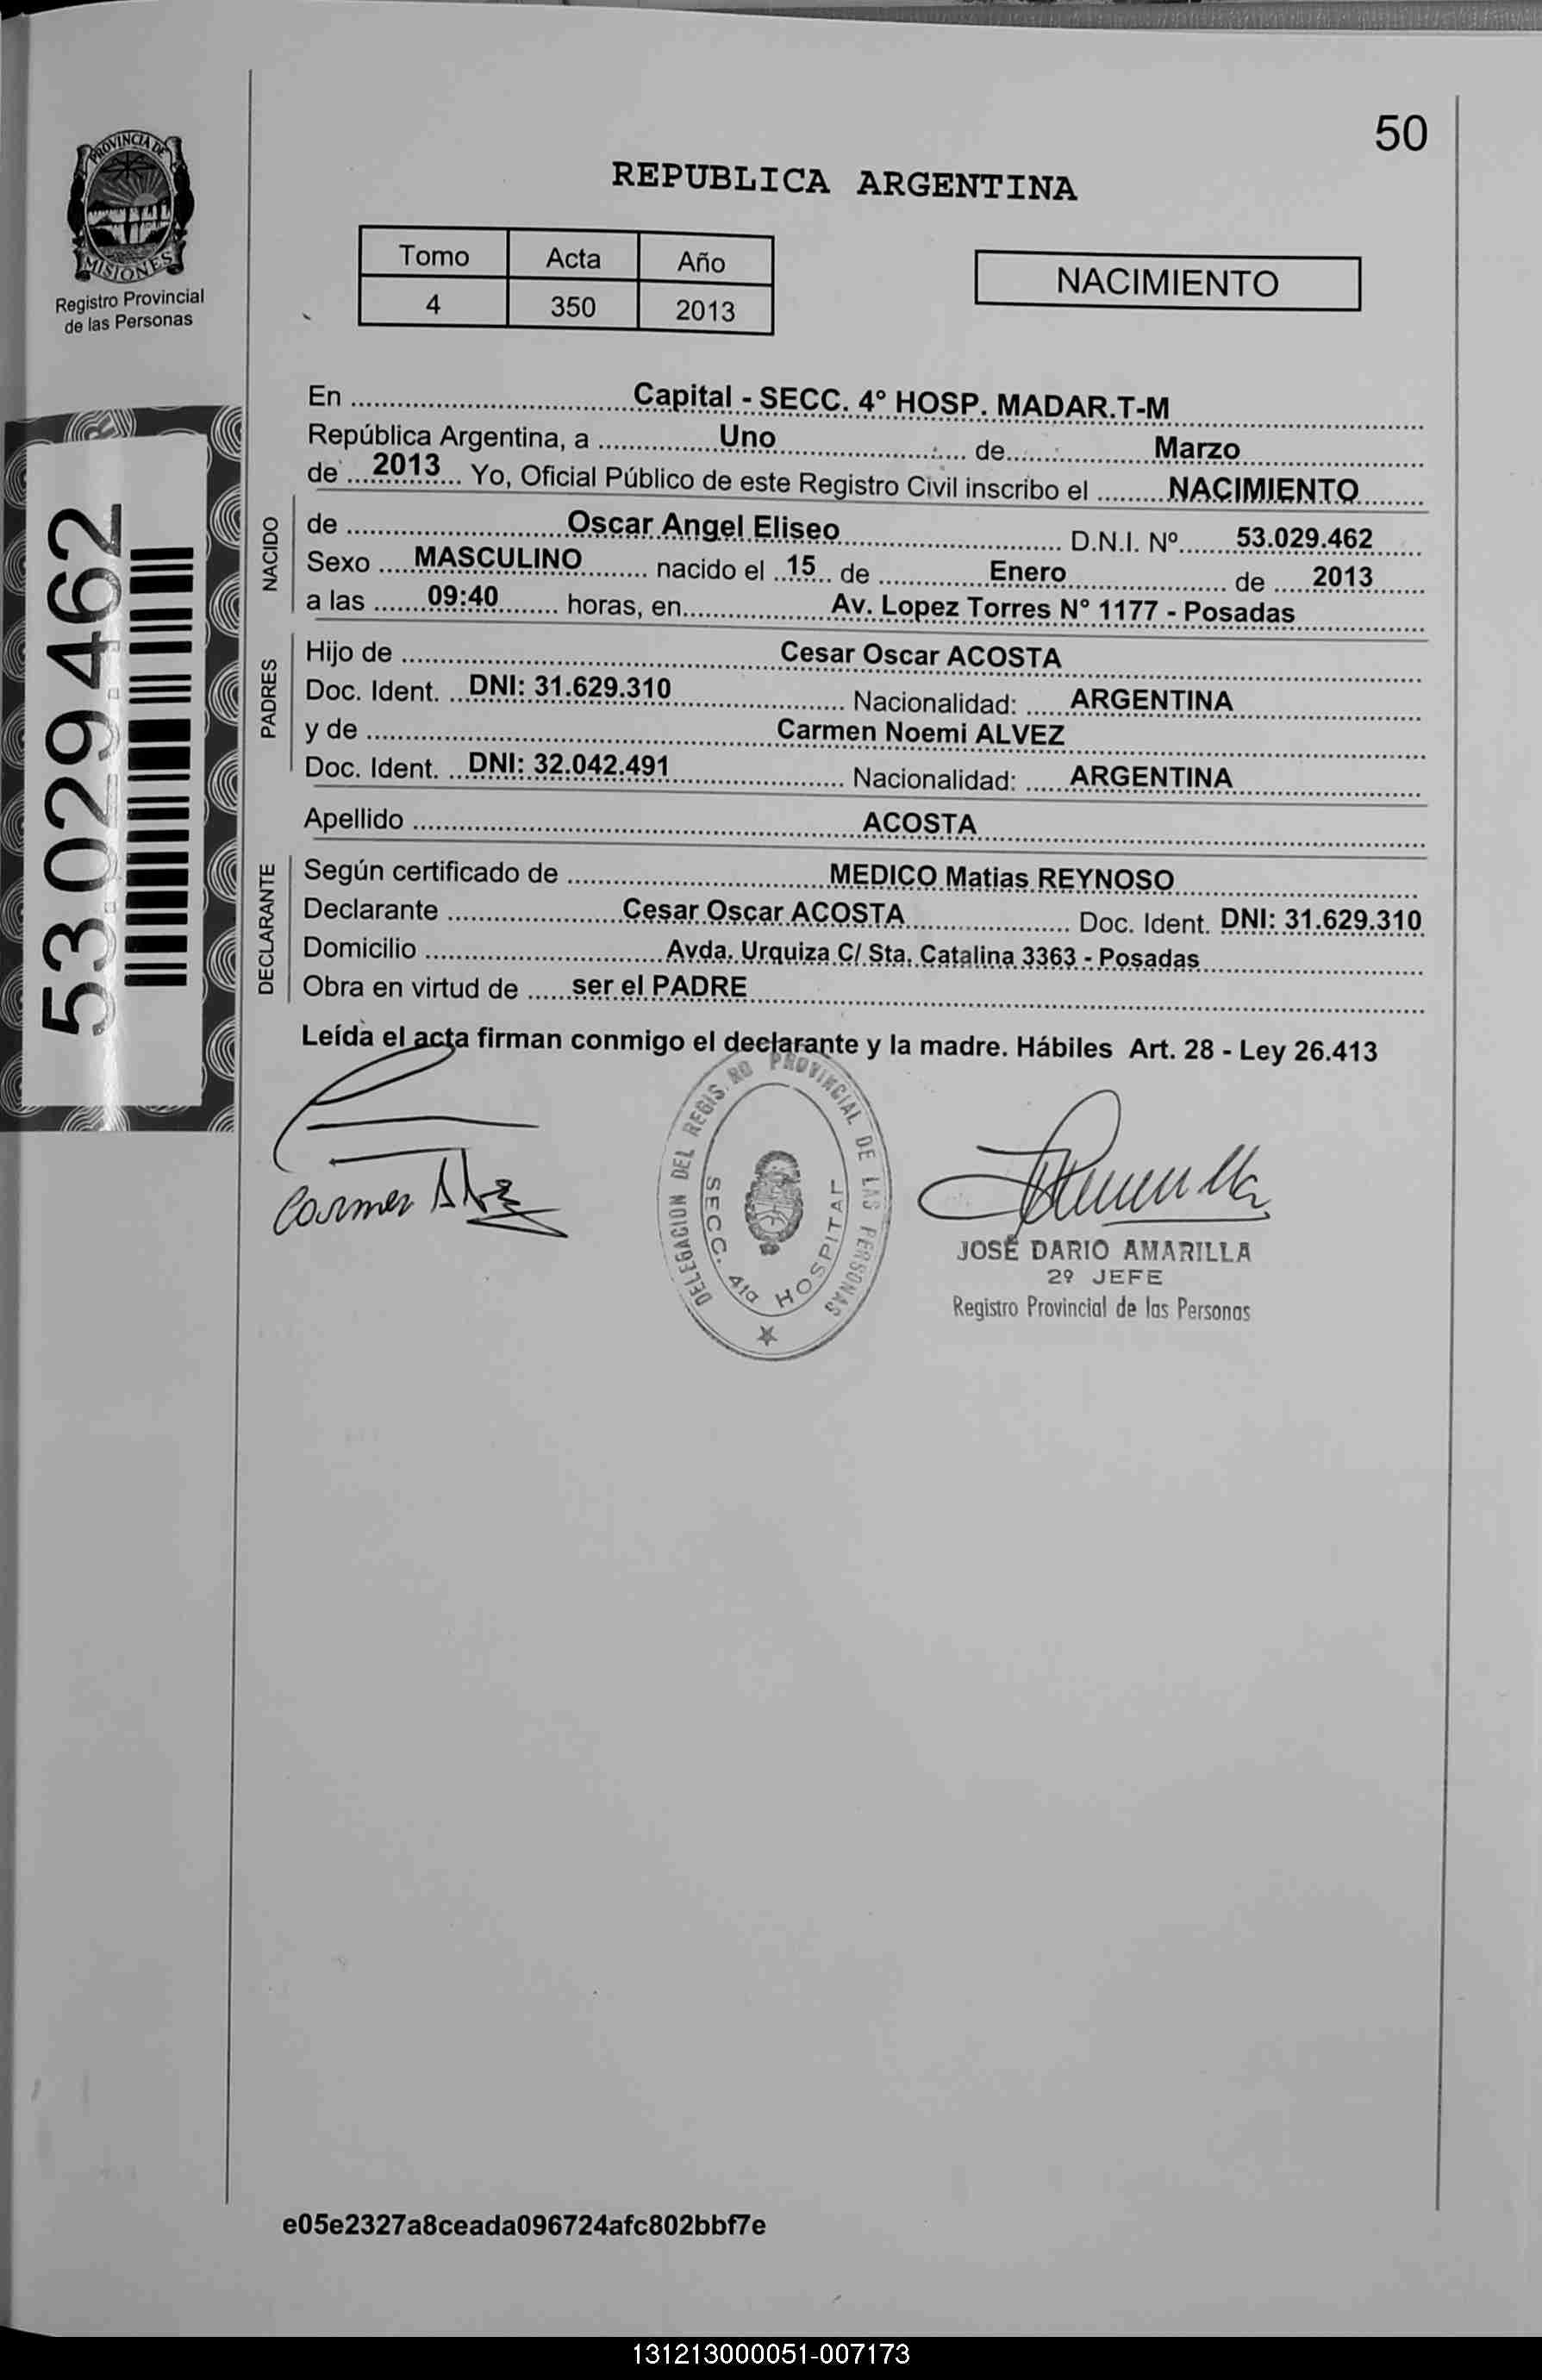 50
PROVINCIA DE
MISIONES
Registro Provincial
de las Personas
REPUBLICA ARGENTINA
Tomo Acta Año
4 350 2013
NACIMIENTO
En Capital - SECC. 4° HOSP. MADAR.T-M
República Argentina, a Uno de Marzo
de 2013 Yo, Oficial Público de este Registro Civil inscribo el NACIMIENTO
NACIDO
de Oscar Angel Eliseo D.N.I. Nº 53.029.462
Sexo MASCULINO nacido el 15 de Enero de 2013
a las 09:40 horas, en Av. Lopez Torres N° 1177 - Posadas
PADRES
Hijo de Cesar Oscar ACOSTA
Doc. Ident. DNI: 31.629.310 Nacionalidad: ARGENTINA
y de Carmen Noemi ALVEZ
Doc. Ident. DNI: 32.042.491 Nacionalidad: ARGENTINA
Apellido ACOSTA
DECLARANTE
Según certificado de MEDICO Matias REYNOSO
Declarante Cesar Oscar ACOSTA Doc. Ident. DNI: 31.629.310
Domicilio Avda. Urquiza C/ Sta. Catalina 3363 - Posadas
Obra en virtud de ser el PADRE
Leída el acta firman conmigo el declarante y la madre. Hábiles Art. 28 - Ley 26.413
53.029.462
Carmen
DELEGACION DEL REGIS RO PROVINCIAL DE LAS PERSONAS
SECC. 4ta HOSPITAL
JOSÉ DARIO AMARILLA
2º JEFE
Registro Provincial de las Personas
e05e2327a8ceada096724afc802bbf7e
131213000051-007173